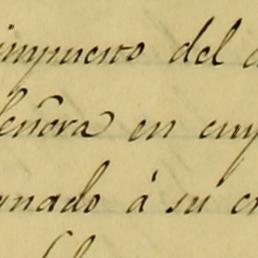 impuesto del
Señora en cuy
gnado á su